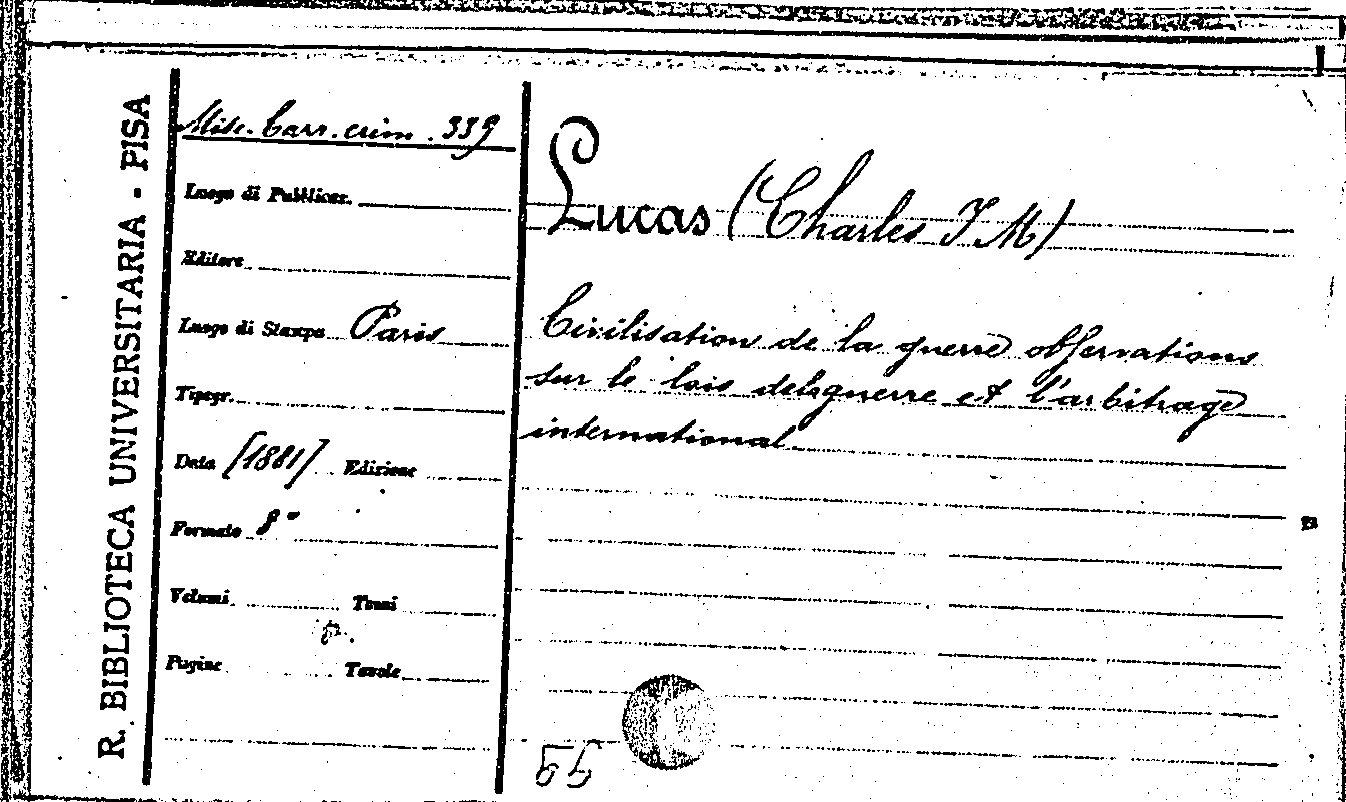 R. BIBLIOTECA UNIVERSITARIA - PISA
Misc. Carr. crim. 339
Luogo di Pubblicaz.
Editore
Luogo di Stampa Paris
Tipogr.
Data [1881] Edizione
Formato 8°
Volumi Tomi
Pagine Tavole
Lucas (Charles J M)
Civilisation de la guerre observations
sur le lois de la guerre et l'arbitrage
international